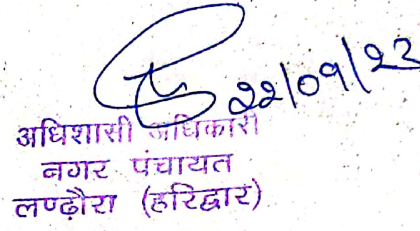 22/09/23
अधिशासी अधिकारी
नगर पंचायत
लण्ढौरा (हरिद्वार)